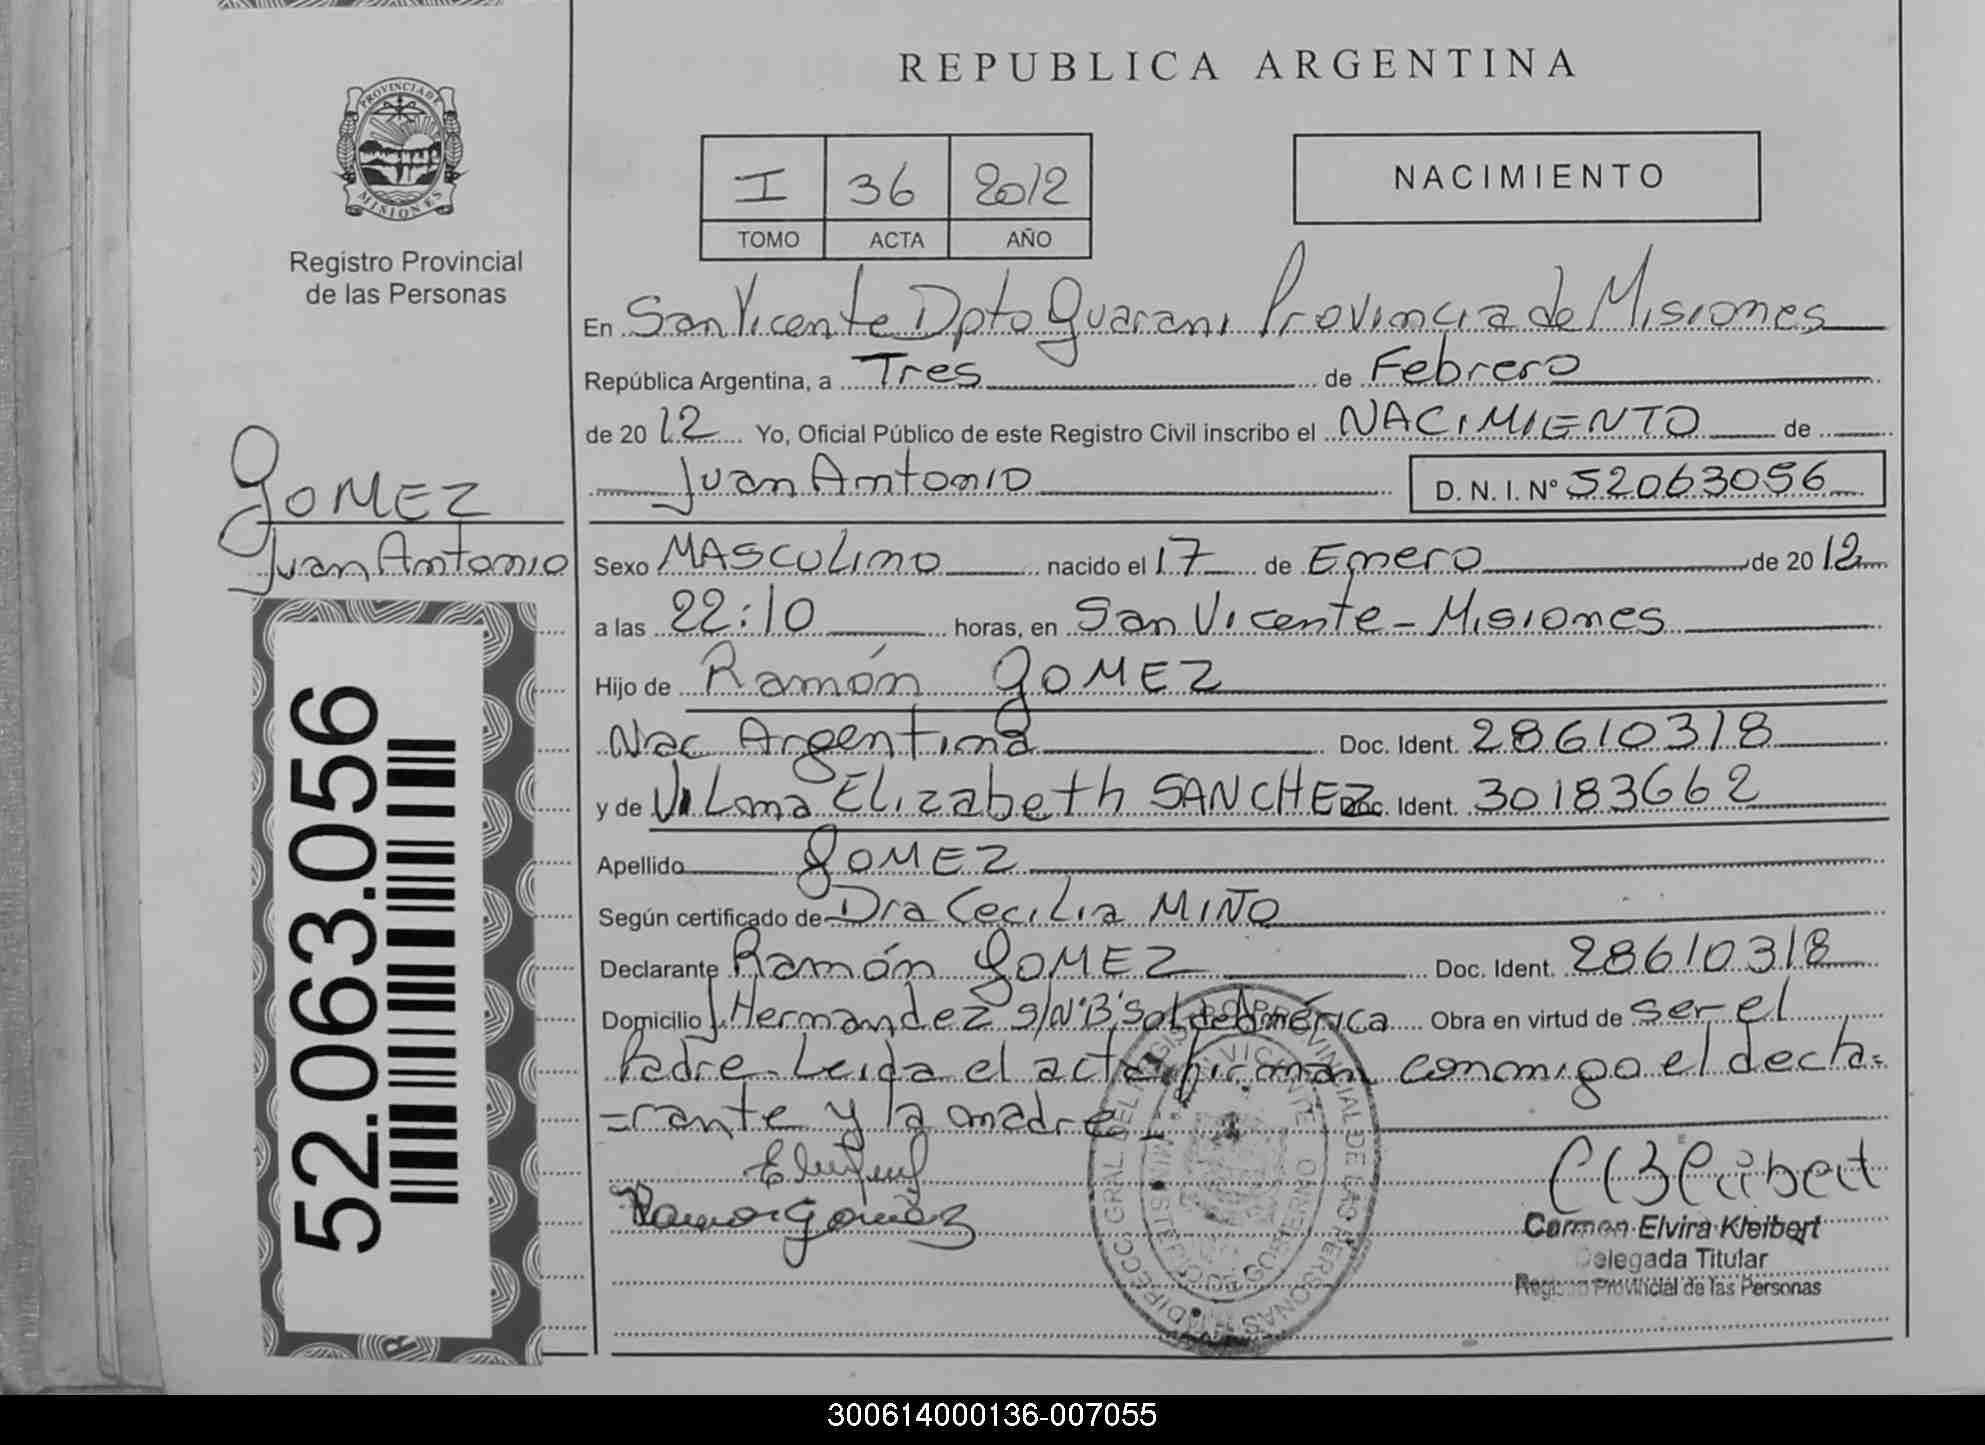 REPUBLICA ARGENTINA
PROVINCIA DE MISIONES
Registro Provincial
de las Personas
I 36 2012
TOMO ACTA AÑO
NACIMIENTO
En San Vicente Dpto Guarani Provincia de Misiones
República Argentina, a Tres de Febrero
de 2012 Yo, Oficial Público de este Registro Civil inscribo el NACIMIENTO de
Juan Antonio D. N. I. Nº 52063056
GOMEZ
Juan Antonio
Sexo MASCULINO nacido el 17 de Enero de 2012
a las 22:10 horas, en San Vicente - Misiones
Hijo de Ramón GOMEZ
Nac Argentina Doc. Ident. 28610318
y de Vilma Elizabeth SANCHEZ Doc. Ident. 30183662
Apellido GOMEZ
Según certificado de Dra Cecilia MIÑO
Declarante Ramón GOMEZ Doc. Ident. 28610318
Domicilio J. Hernandez S/Nº Bº Sol de América Obra en virtud de ser el
Padre. Leida el acta firman conmigo el decla=
=rante y la madre
Ramon Gomez
Carmen Elvira Kleibert
Delegada Titular
Registro Provincial de las Personas
52.063.056
300614000136-007055